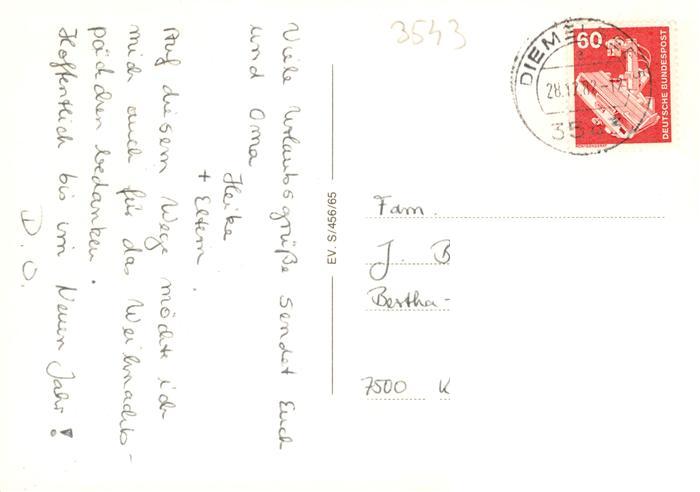 Viele Urlaubsgrüße sendet Euch
und Oma
Heike
+ Eltern.
Auf diesem Wege möchte ich
mich auch für das Weihnachts-
päckchen bedanken.
Hoffentlich bis im Neuen Jahr!
D. O.
EV. S/456/65
3543
DIEMEL
28.12.82-17
354
60
DEUTSCHE BUNDESPOST
Fam.
J. B
Bertha-
7500 K